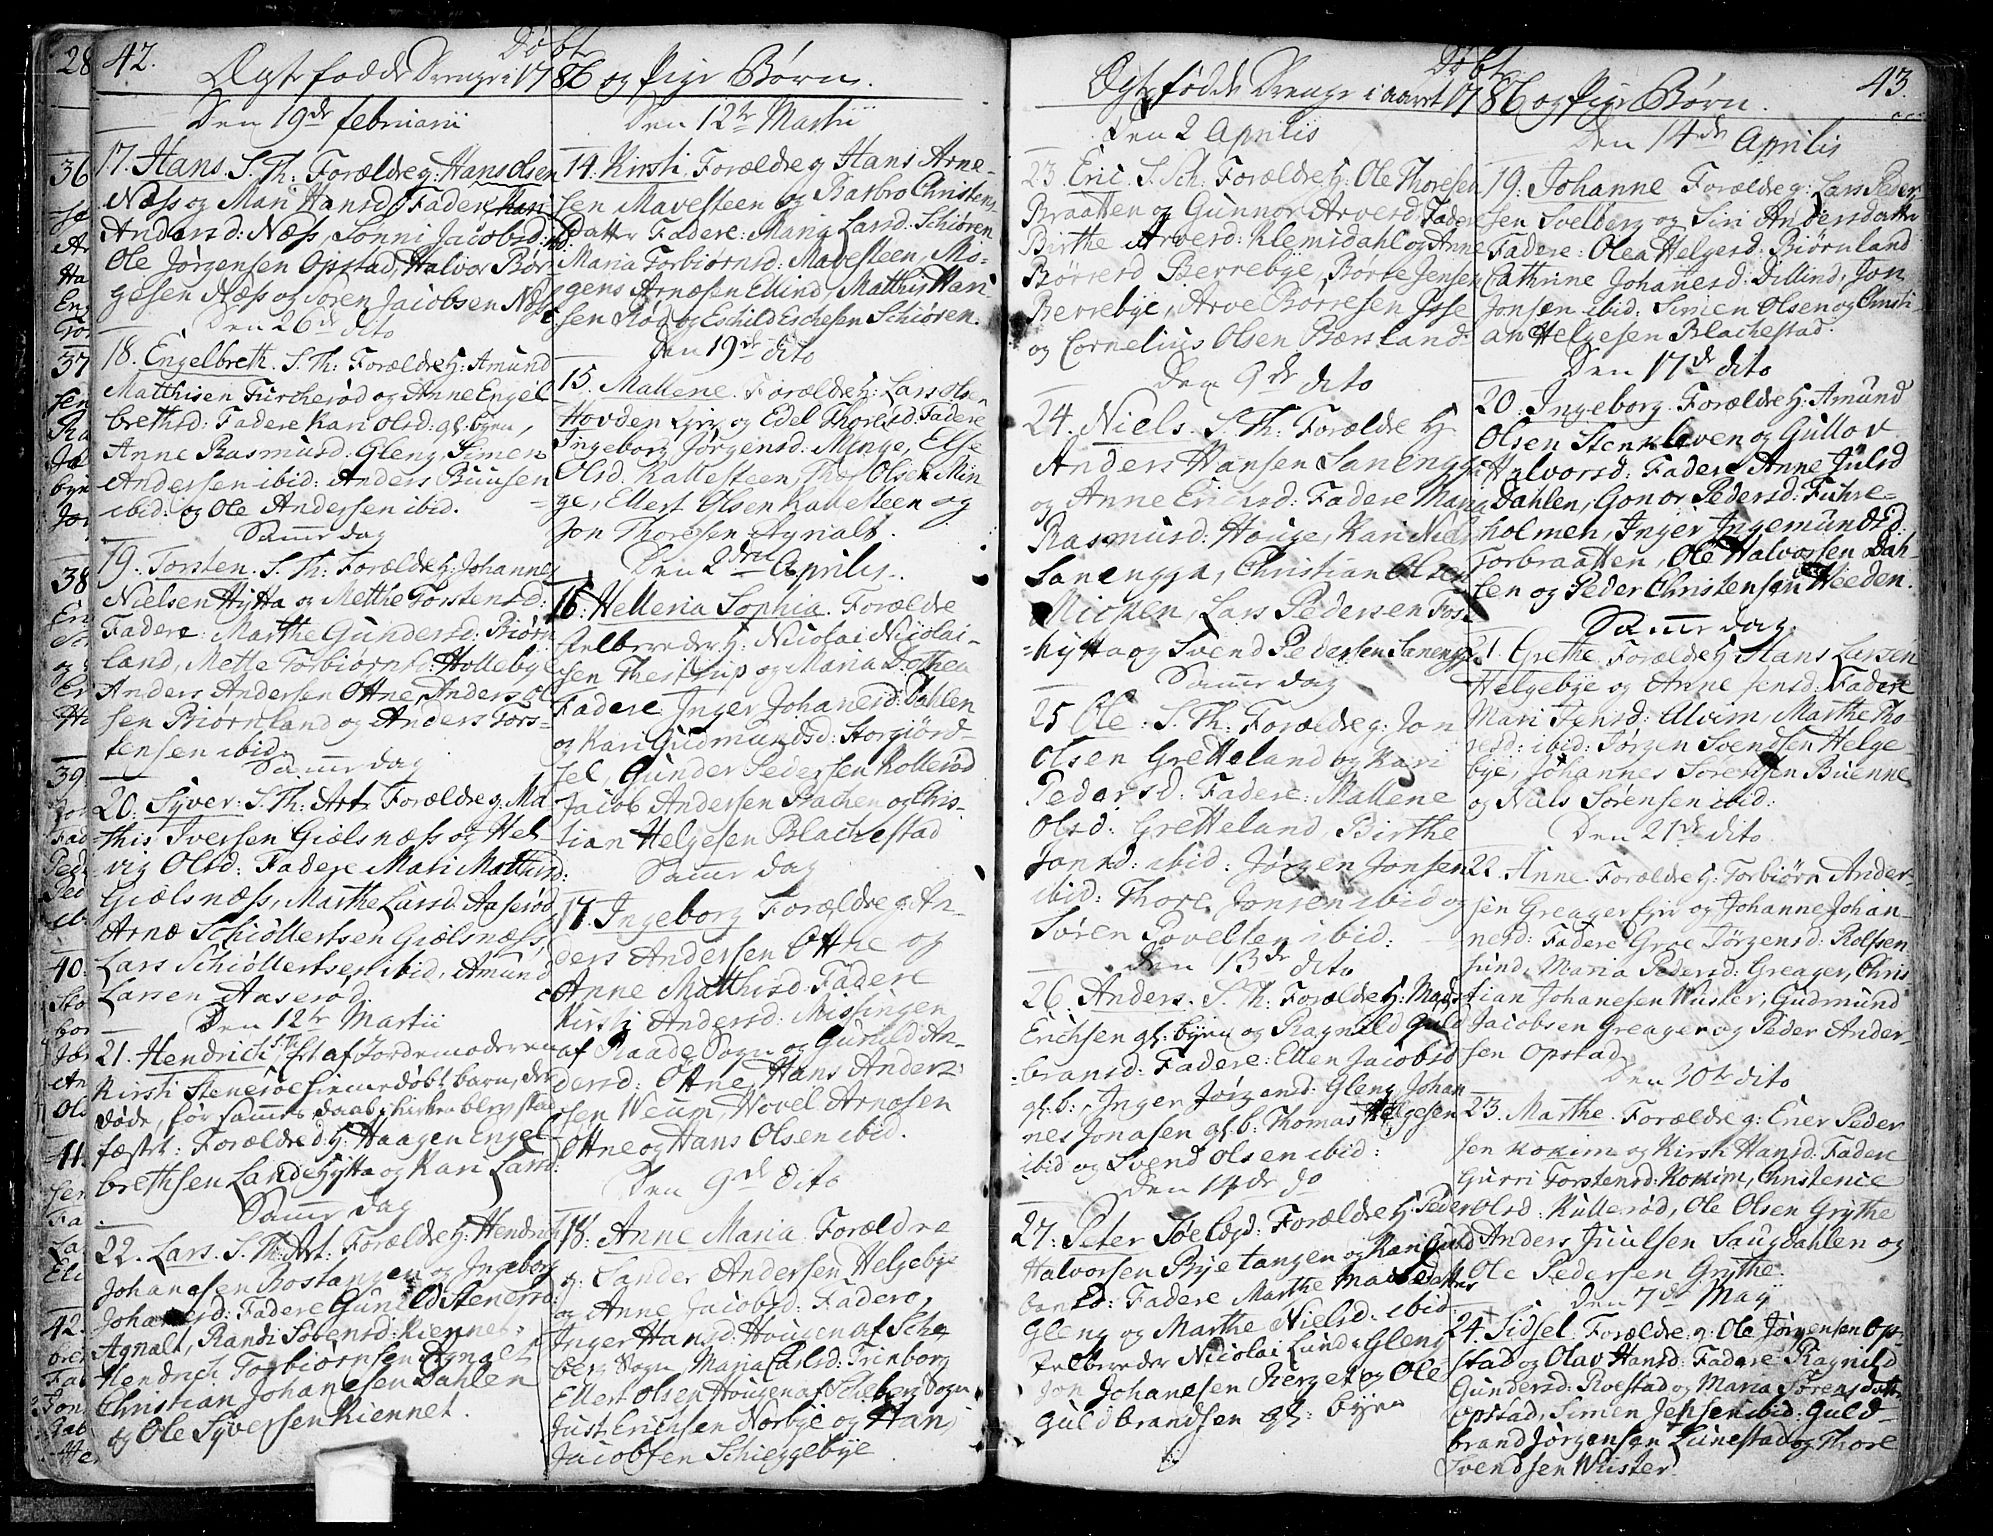 42.
Døbt
Ægte fødde Drenge i 1786 og Pige Børn.
Den 19de Februarii
17. Hans. S. Th: Forældre g: Hans Olsen
Næss og Mari Hansd: Faddere
Andersd: Næss, Sønni Jacobsd:
Ole Jørgensen Opstad, Halvor Bør-
gesen Næss og Søren Jacobsen Næss
Den 26de dito
18. Engelbreth. S. Th: Forældre H: Amund
Matthisen Furcherød og Anne Engel-
brethsd: Fadere Kari Olsd: gl. byen,
Anne Rasmusd: Gleng Simen
Andersen ibid: Anders Buusen
ibid: og Ole Andersen ibid.
Samme dag
19. Torsten. S. Th: Forældre H: Johannes
Nielsen Hytta og Metthe Torstensd:
Fadere: Marthe Gundersd: Biørn
land, Mette Torbiørnsd: Hollebye
Anders Andersen Ottne, Anders Ol
sen Biørnland og Anders Tors-
tensen ibid:
Samme dag
20. Syver. S. Th: Art: Forældre g: Ma
this Iversen Giølsnæss og Hel
vig Olsd: Fadere Mari Mathisd:
Giølsnæss, Marthe Larsd: Aaserød
Arne Schiøllertsen Giølsnæss,
Lars Schiøllertsen ibid, Amund
Larsen Aaserød
Den 12te Martii
21. Hendrich S. Th. est af Jordemoderen
Kirsti Stenerøe hiemedøbt barn, der
døde, før samme daab i Kirken blev stad
fæstet: Forældre H: Haagen Engel-
brethsen Lande Hytta og Kari Larsd:
Samme dag
22. Lars. S. Th: Art: Forældre H: Hendrich
Johanesen Rostangen og Ingeborg
Johanesd: Fadere Gunild Stenersd:
Agnalt, Randi Sørensd: Kiennet,
Hendrich Torbiørnsen Agnalt
Christian Johanesen Dahlen
og Ole Syversen Kiennet.
Den 12te Martii
14. Kirsti. Forældre g Hans Arne-
sen Mavesteen og Barbro Christens-
Datter Fadere: Maria Larsd: Schiøren
Maria Torbiørnsd: Mavesteen, Mo-
gens Arnesen Ellind, Matthis Hari
sen Rød og Eschild Eschesen Schiøren.
Den 19de dito
15. Mallene. Forældre H: Lars Olsen
Hovden Eyie og Edel Thoresd: Fadere
Ingeborg Jørgensd: Minge, Else
Olsd: Kallesteen, Thos Olsen Min
ge, Ellert Olsen Kallesteen og
Jon Thoresen Agnalt.
Den 2den Aprilis.
16. Helleria Sophia. Forældre
Selbereder H: Nicolai Nicolai-
sen Theistrup og Maria Dothea
Fadere: Inger Johanesd: Dahlen
og Kari Gudmundsd: Storgiord-
set, Gunder Pedersen Kollerød
Jacob Andersen Bachen og Chris-
tian Helgesen Blachestad
Samme dag
17. Ingeborg Forældre g: An-
ders Andersen Ottne og
Anne Matthisd: Fadere
Kirsti Andersd: Missingen
af Raade Sogn og Gunild An-
dersd: Ottne, Hans Anders-
sen Weum, Hovel Arnesen
Ottne og Hans Olsen ibid.
Den 9de dito
18. Anne Maria Forældre
g: Sander Andersen Helgebye
og Anne Jacobsd: Fadere,
Inger Hansd: Hougen af Sche
berg Sogn, Maria Carlsd: Trinborg
Ellert Olsen Hougen af Scheberg Sogn
Just Erichsen Norbye og Han
Jacobsen Schieggebye
43.
Døbt
Ægte fødde Drenge i aaret 1786 og Pige Børn.
Den 2 Aprilis
23. Eric. S. Th: Forældre H: Ole Thoresen
Braatten og Gunnor Arvesd: Fadere
Birthe Arvesd: Klemisdahl og Anne
Børresd Berrebye, Børre Jensen
Berrebye, Arve Børresen Isse
og Cornelius Olsen Bærsland:
Den 9de dito
24. Niels. S. Th: Forældre H
Anders Hansen Sanengg:
og Anne Erichsd: Fadere Maria
Rasmusd: Houge, Kari Niels
Sanengga, Christian Olsen
Micken, Lars Pedersen Tos-
hytta og Svend Pedersen Sanengg
Samme dag
25 Ole. S. Th: Forældre g: Jon
Olsen Gretteland og Kari
Pedersd. Fadere: Mallene
Olsd: Gretteland, Birthe
Jonsd: ibid: Jørgen Jonsen
ibid: Thore Jonsen ibid og
Søren Povelsen ibid:
Den 13de dito
26. Anders. S. Th: Forældre H: Mads
Erichsen gl: byen og Ragnild Guld
bransd: Fadere: Ellen Jacobsd
gl: b:, Inger Jørgensd: Gleng Johan
nes Jonasen gl. b: Thomas Helgesen
ibid og Svend Olsen ibid:
Den 14de do
27. Peter Søe Forældre H: Peder
Halvorsen Bryetangen og Kari Guld
bransd: Fadere Marthe Madsdatter
Gleng og Marthe Nielsd. ibid
Felbereder Nicolai Lund: Gleng
Jon Johanesen Berget og Ole
Guldbrandsen gl: byen
Den 14de Aprilis
19. Johanne Forældre g: Lars Peder
sen Svelberg og Siri Andersdatter
Fadere: Olea Helgesd: Biørnland
Cathrine Johanesd: Dillind, Jon
Jonsen ibid: Simen Olsen og Christi-
an Helgesen Blachestad.
Den 17de dito
20. Ingeborg. Forældre H: Amund
Olsen Stenkløven og Gullov
Halvorsd: Fadere Anne Julsd
Dahlen, Gonor Pedersd: Fuhre-
holmen, Inger Ingemundsd:
Torbraatten, Ole Halvorsen Dah
len og Peder Christensen Heeden.
Samme dag.
21. Grethe Forældre H Hans Larsen
Helgebye og Anne Jensd: Fadere
Mari Jensd: Alvim, Marthe Tho-
resd: ibid: Jørgen Svendsen Helge
bye, Johannes Sørensen Buenne
og Niels Sørensen ibid:
Den 21de dito
22. Anne Forældre H: Torbiørn Ander-
sen Greager Eyie og Johanne Johan-
nesd: Fadere Groe Jørgensd: Rolfsøe
sund, Maria Pedersd: Greager, Chris
tian Johanesen Wister, Gudmund
Jacobsen Greager og Peder Ander-
sen Opstad
Den 30te dito
23. Marthe. Forældre g: Ener Peder
sen Kokim og Kirsti Hansd: Fadere
Gurri Torstensd: Kokim, Christence
Olsd: Kullerød, Ole Olsen Grythe
Anders Juulsen Saugdahlen og
Ole Pedersen Grythe.
Den 7de May
24. Sidsel Forældre g: Ole Jørgensen Op-
stad og Olav Hansd: Fadere Ragnild
Gundersd: Roestad og Maria Sørensdatt
Opstad, Simen Jepsen ibid: Guld-
brand Jørgensen Lunestad og Thore
Svendsen Wister.